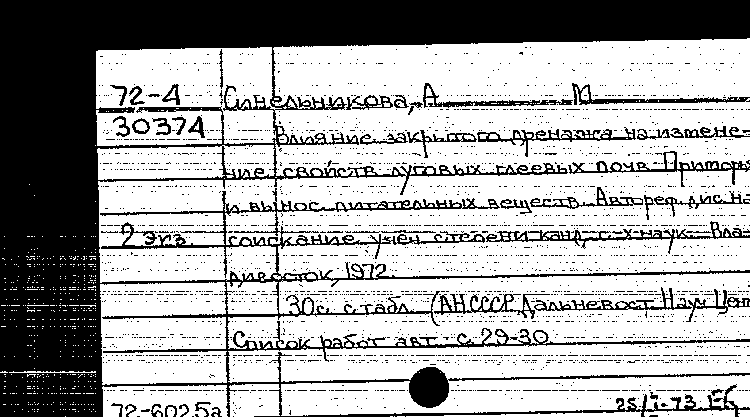 72-4 Синельникова, А М
30374 Влияние закрытого дренажа на измене-
ние свойств луговых глеевых почв Примор
и вынос питательных веществ. Автореф. дис. на
2 экз. соискание учён степени канд. с-х наук. Вла-
дивосток, 1972.
30с. с табл. (АН СССР. Дальневост Науч Цен
Список работ авт. с. 29-30
72-6025а 25/I-73.